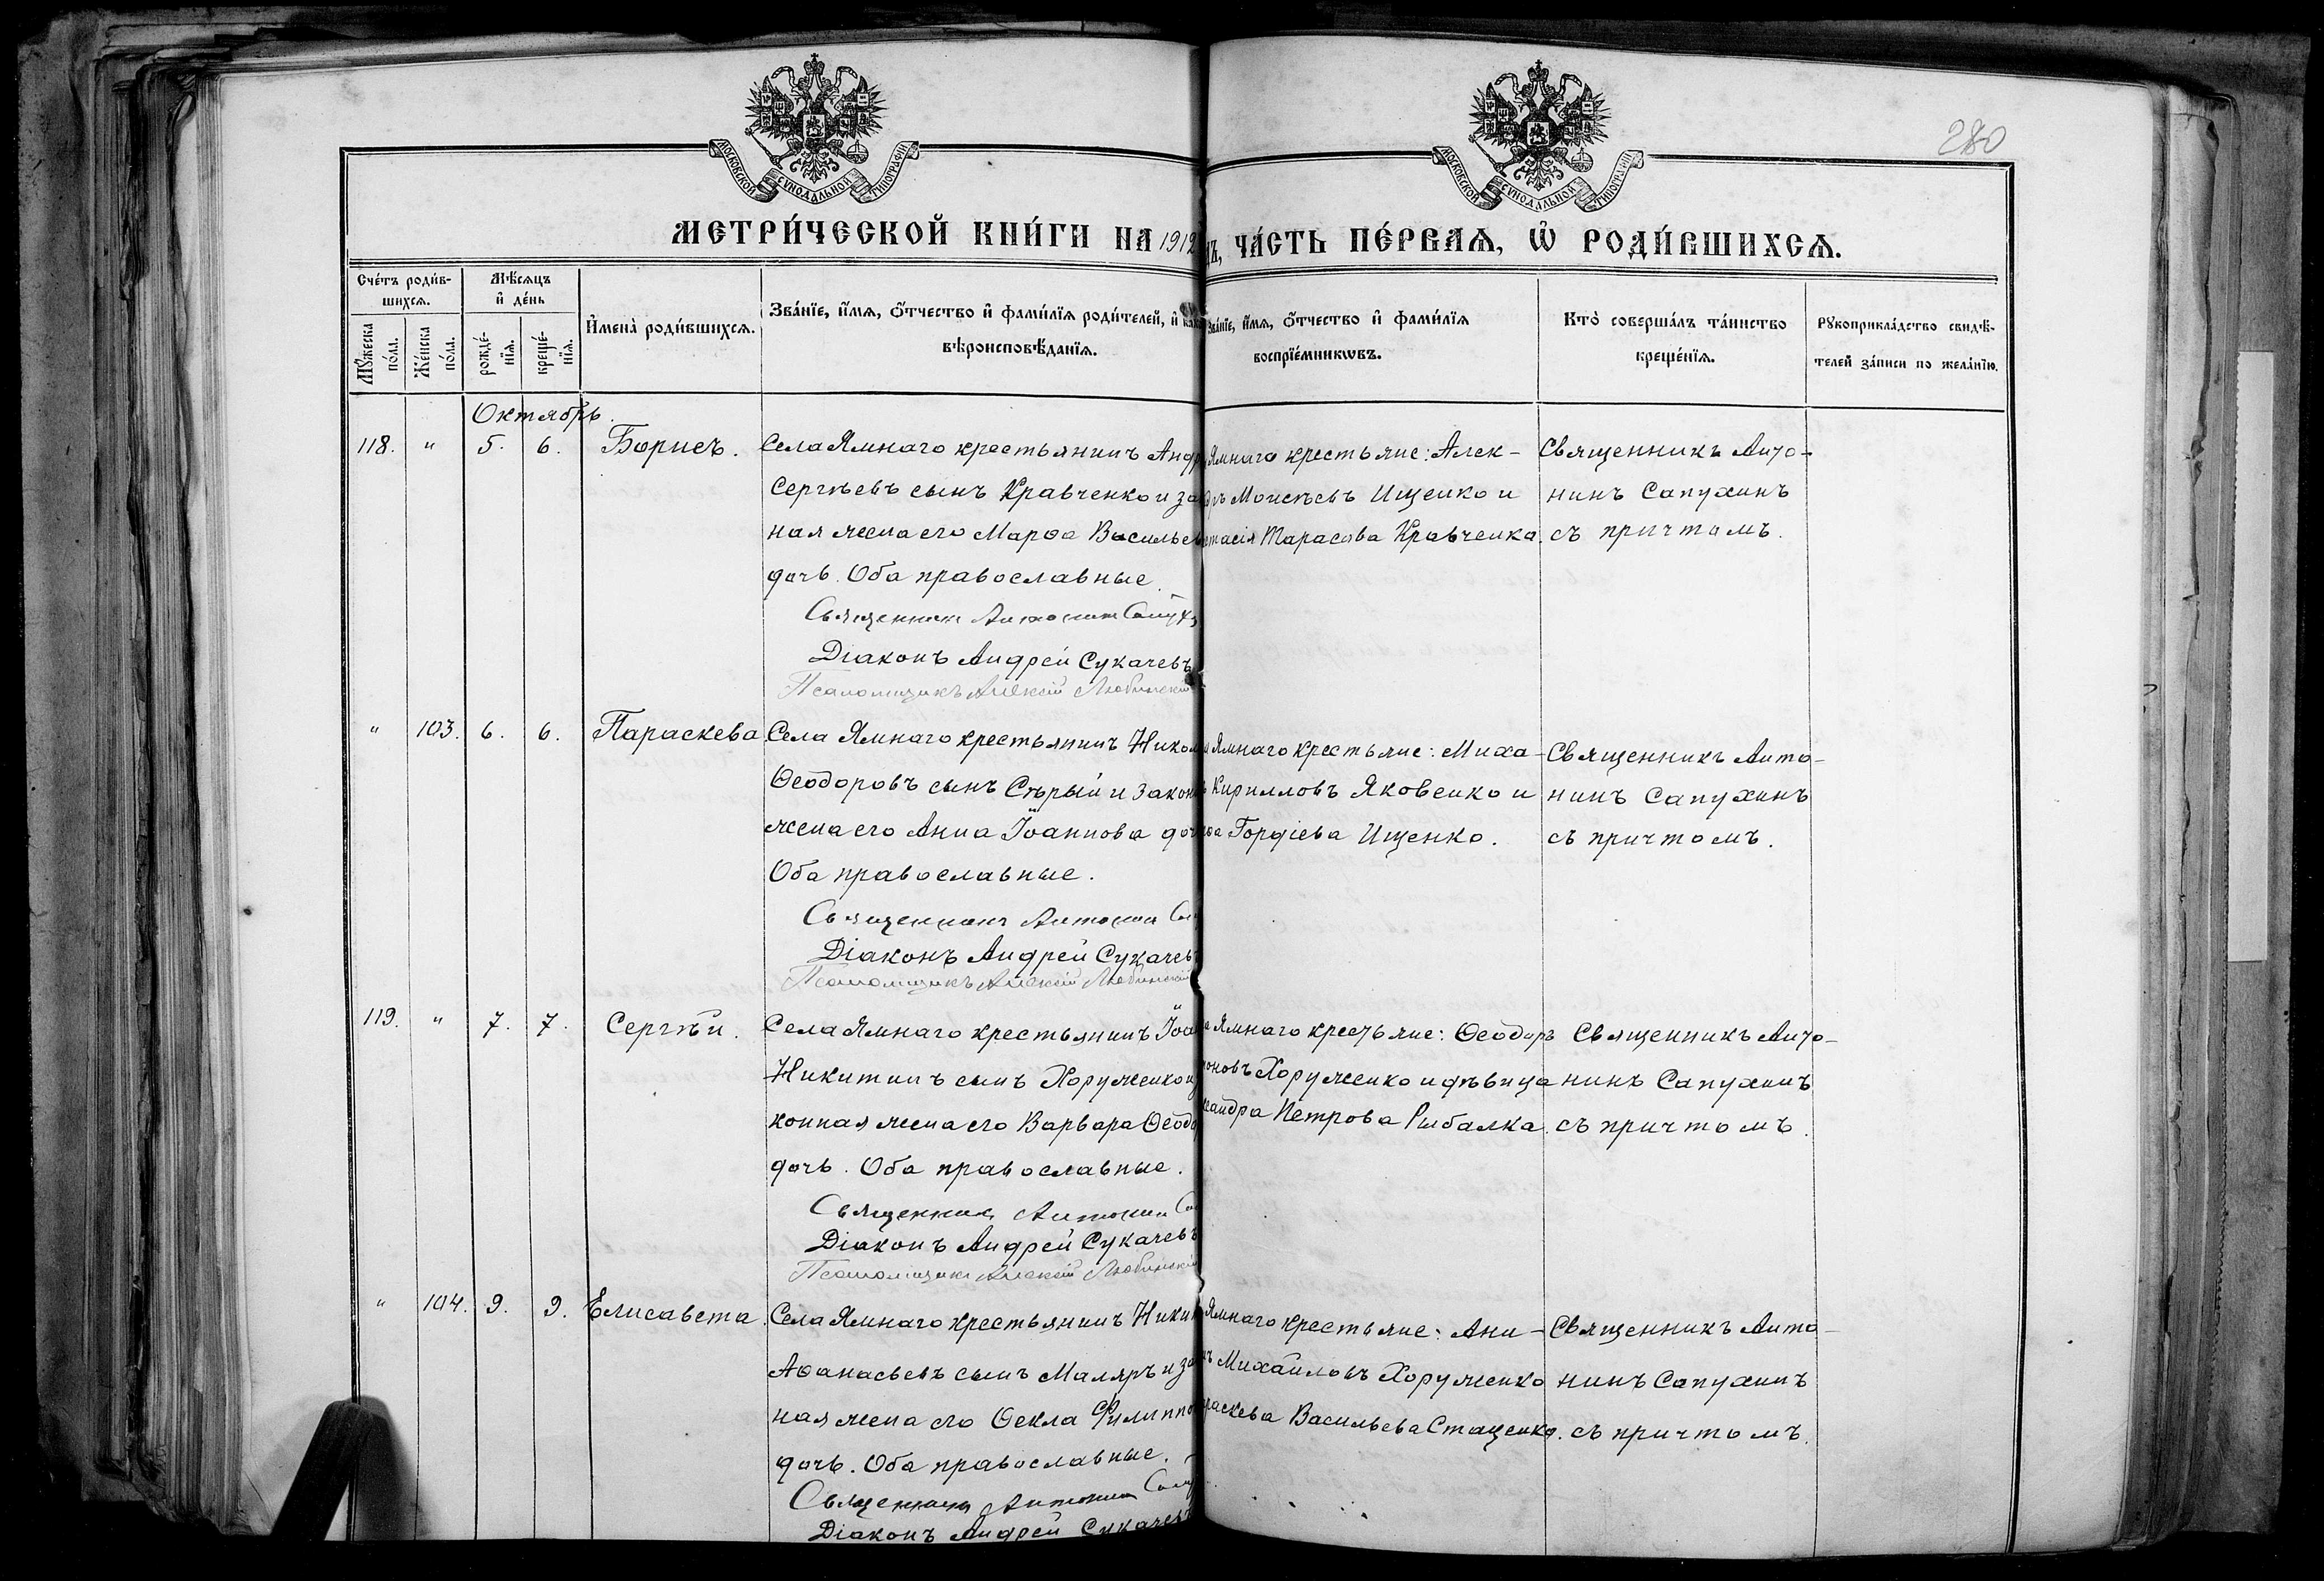 МОСКОВСКОЙ СУНОДАЛЬНОЙ ТИПОГРАФІИ
МОСКОВСКОЙ СУНОДАЛЬНОЙ ТИПОГРАФІИ
280
МЕТРИ́ЧЕСКОЙ КНИ́ГИ НА 1912
ЧА́СТЬ ПЕ́РВАЯ, Ѡ РОДИ́ВШИХСЯ.
Сче́тъ роди́в-
шихся.
Мѣ́сяцъ
и҆ де́нь
Му́жеска
по́ла.
Же́нска
по́ла.
рожде́-
нїя.
креще́-
нїя.
И҆мена̀ роди́вшихся.
Зва́нїе, и҆́мя, ѻ҆́тчество и҆ фами́лїя роди́телей, и҆ как
вѣроисповѣ́данїя.
Зва́нїе, и҆́мя, ѻ҆́тчество и҆ фами́лїя
воспрїе́мникѡвъ.
Кто̀ соверша́лъ та́инство
креще́нїя.
Рукоприкла́дство свидѣ́-
телей за́писи по жела́нїю.
Октябрь.
118. " 5. 6. Борисъ.
Села Ямнаго крестьянинъ Андр
Сергѣевъ сынъ Кравченко и за
ная жена его Марѳа Васильев
дочь. Оба православные.
Священникъ Антонинъ Сапух
Діаконъ Андрей Сукачевъ
Псаломщикъ Алексій Любинскій
Ямнаго крестьяне: Алек-
дръ Моисѣевъ Ищенко и
стасія Тарасова Кравченка.
Священникъ Анто-
нинъ Сапухинъ
съ причтомъ.
" 103. 6. 6. Параскева.
Села Ямнаго крестьянинъ Никол
Ѳеодоровъ сынъ Сѣрый и закон
жена его Анна Іоаннова доч
Оба православные.
Священникъ Антонин Са
Діаконъ Андрей Сукачевъ
Псаломщикъ Алексій Любинскій
Ямнаго крестьяне: Миха-
Кирилловъ Яковенко и
Гордіева Ищенко.
Священникъ Анто-
нинъ Сапухинъ
съ причтомъ.
119. " 7. 7. Сергѣй.
Села Ямнаго крестьянинъ Іоа
Никитинъ сынъ Хоруженко и
конная жена его Варвара Ѳеодо
дочь. Оба православные.
Священник Антонин Са
Діаконъ Андрей Сукачевъ
Псаломщикъ Алексій Любинскій
Ямнаго крестьяне: Ѳеодоръ
оновъ Хоруженко и дѣвица
сандра Петрова Рыбалка.
Священникъ Анто-
нинъ Сапухинъ
съ причтомъ.
" 104. 9. 9. Елисавета.
Села Ямнаго крестьянинъ Ники
Аѳанасьевъ сынъ Маляръ и за
ная жена его Ѳекла Филиппо
дочь. Оба православные.
Священникъ Антонин Сапу
Діаконъ Андрей Сукачевъ
Ямнаго крестьяне: Ани-
Михайловъ Хоруженко
раскева Васильева Стаценко.
Священникъ Анто-
нинъ Сапухинъ
съ причтомъ.